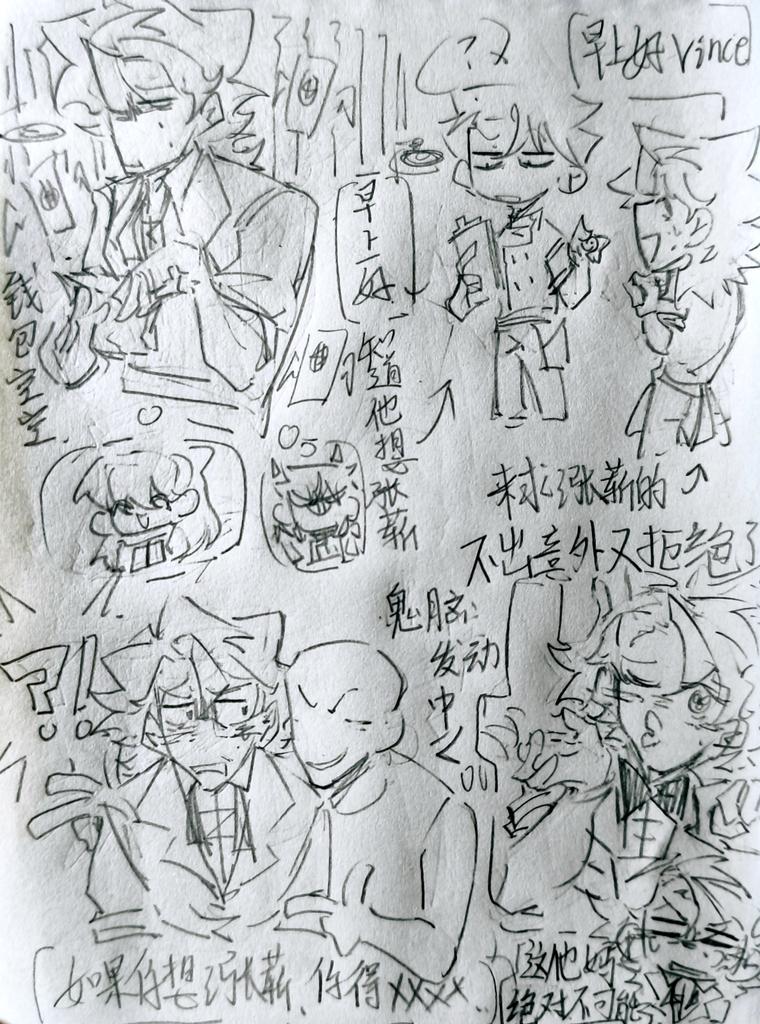 早上好 Vince
早上好
钱包空空
知道他想涨薪
来求涨薪的
不出意外又拒绝了
?!
鬼脑发动中
如果你想涨薪，你得xxxx
这他妈
绝对不可能